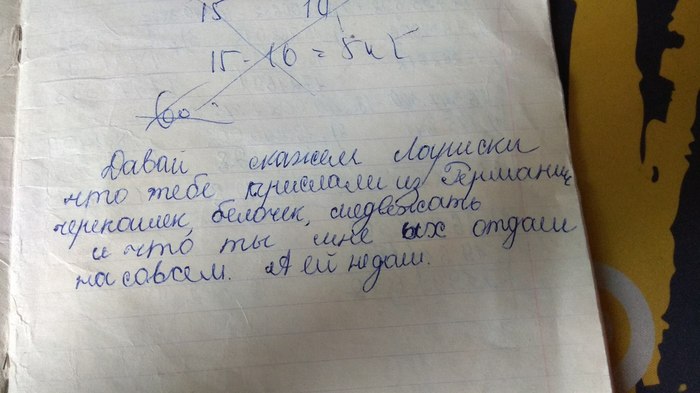 15 10
15 - 10 = 5
60
Давай скажем Лоуиски
что тебе прислали из Германии
черепашек, белочек, медвежать
и что ты мне их отдаш
насовсем. А ей недаш.